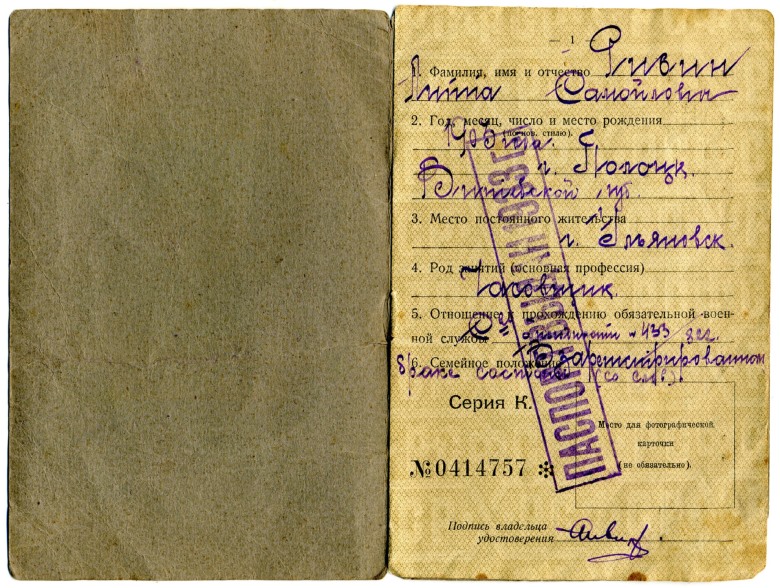 — 1 —
1. Фамилия, имя и отчество Ривин
Самойлович
2. Год, месяц, число и место рождения
(по нов. стилю).
1905 года.
г. Полоцк
Витебской губ.
3. Место постоянного жительства
г. Ульяновск.
4. Род занятий (основная профессия)
Часовщик.
5. Отношение к прохождению обязательной воен-
ной службы № 433
6. Семейное положение В зарегистрированном
браке состоит (со слов).
Серия К.
№ 0414757 ✻
Место для фотографической
карточки
(не обязательно).
Подпись владельца
удостоверения
ПАСПОРТ ВЫДАН 1933 г.